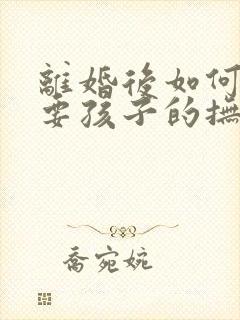 離婚後如何
要孩子的撫
喬宛婉